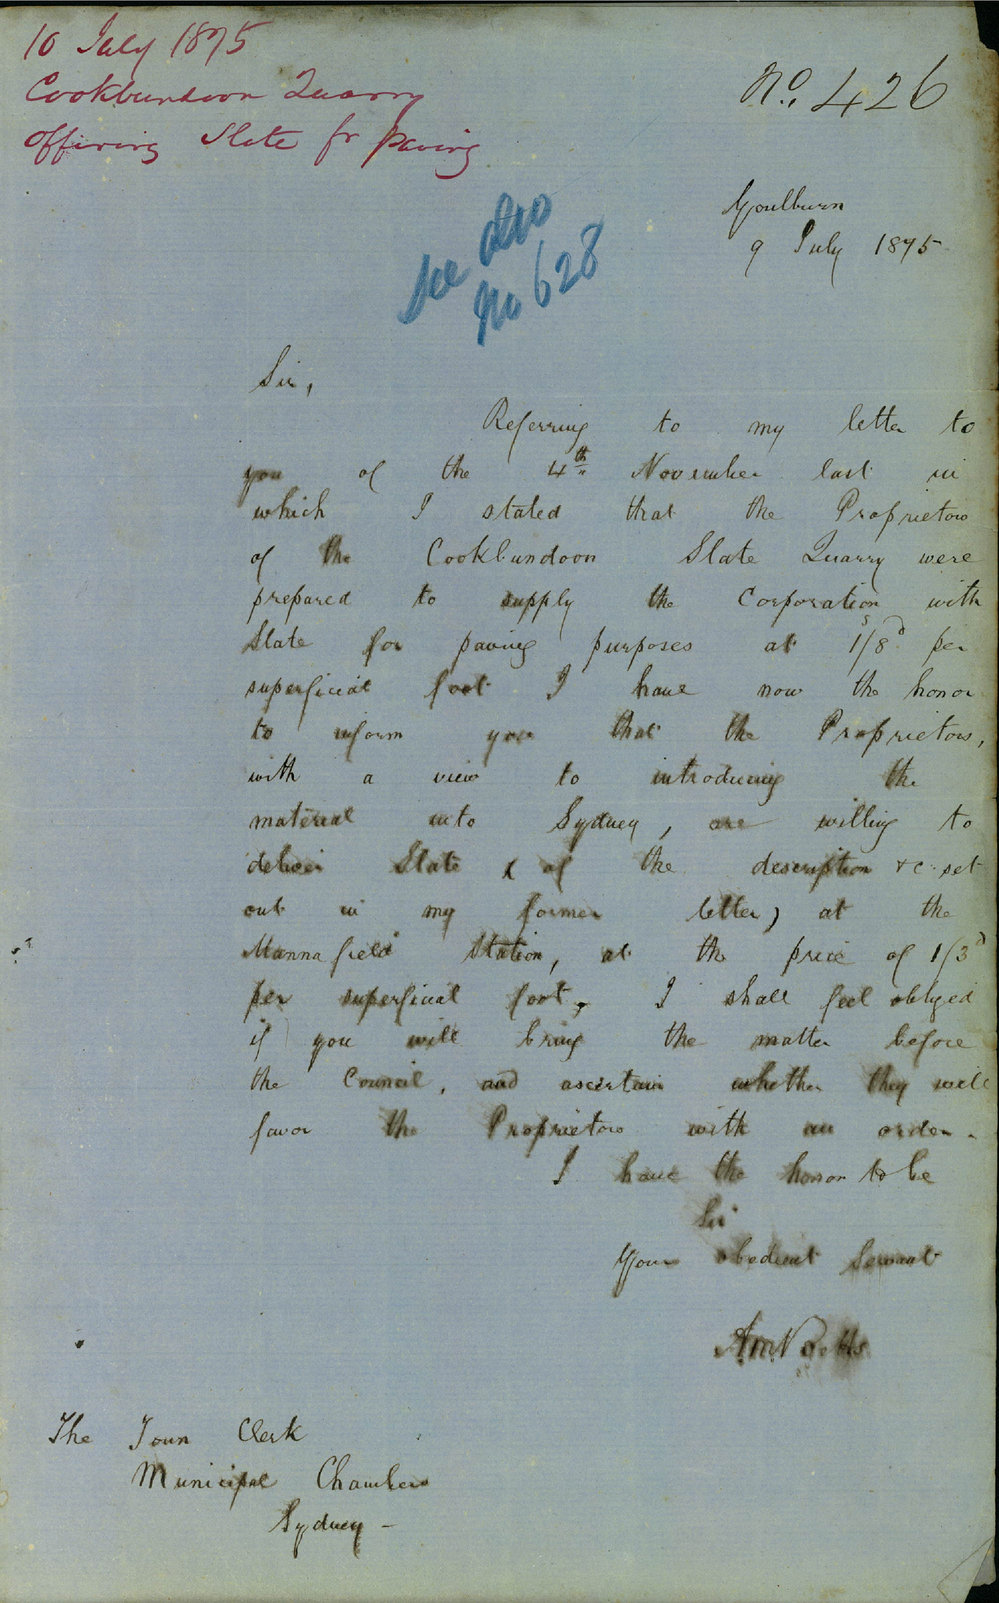 10 July 1875
Cookbundoon Quarry
offering Slate fr paving
No. 426
Goulburn
9 July 1875
See also
No 628
Sir,
Referring to my letter to
you of the 4th November last in
which I stated that the Proprietors
of the Cookbundoon Slate Quarry were
prepared to supply the Corporation with
Slate for paving purposes at 1s/8d per
superficial foot I have now the honor
to inform you that the Proprietors,
with a view to introducing the
material into Sydney, are willing to
deliver Slate (of the description &c set
out in my former letter) at the
Mannafield Station, at the price of 1/3d
per superficial foot, I shall feel obliged
if you will bring the matter before
the Council, and ascertain whether they will
favor the Proprietors with an order.
I have the honor to be
Sir
Your obedient Servant
The Town Clerk
Municipal Chambers
Sydney -